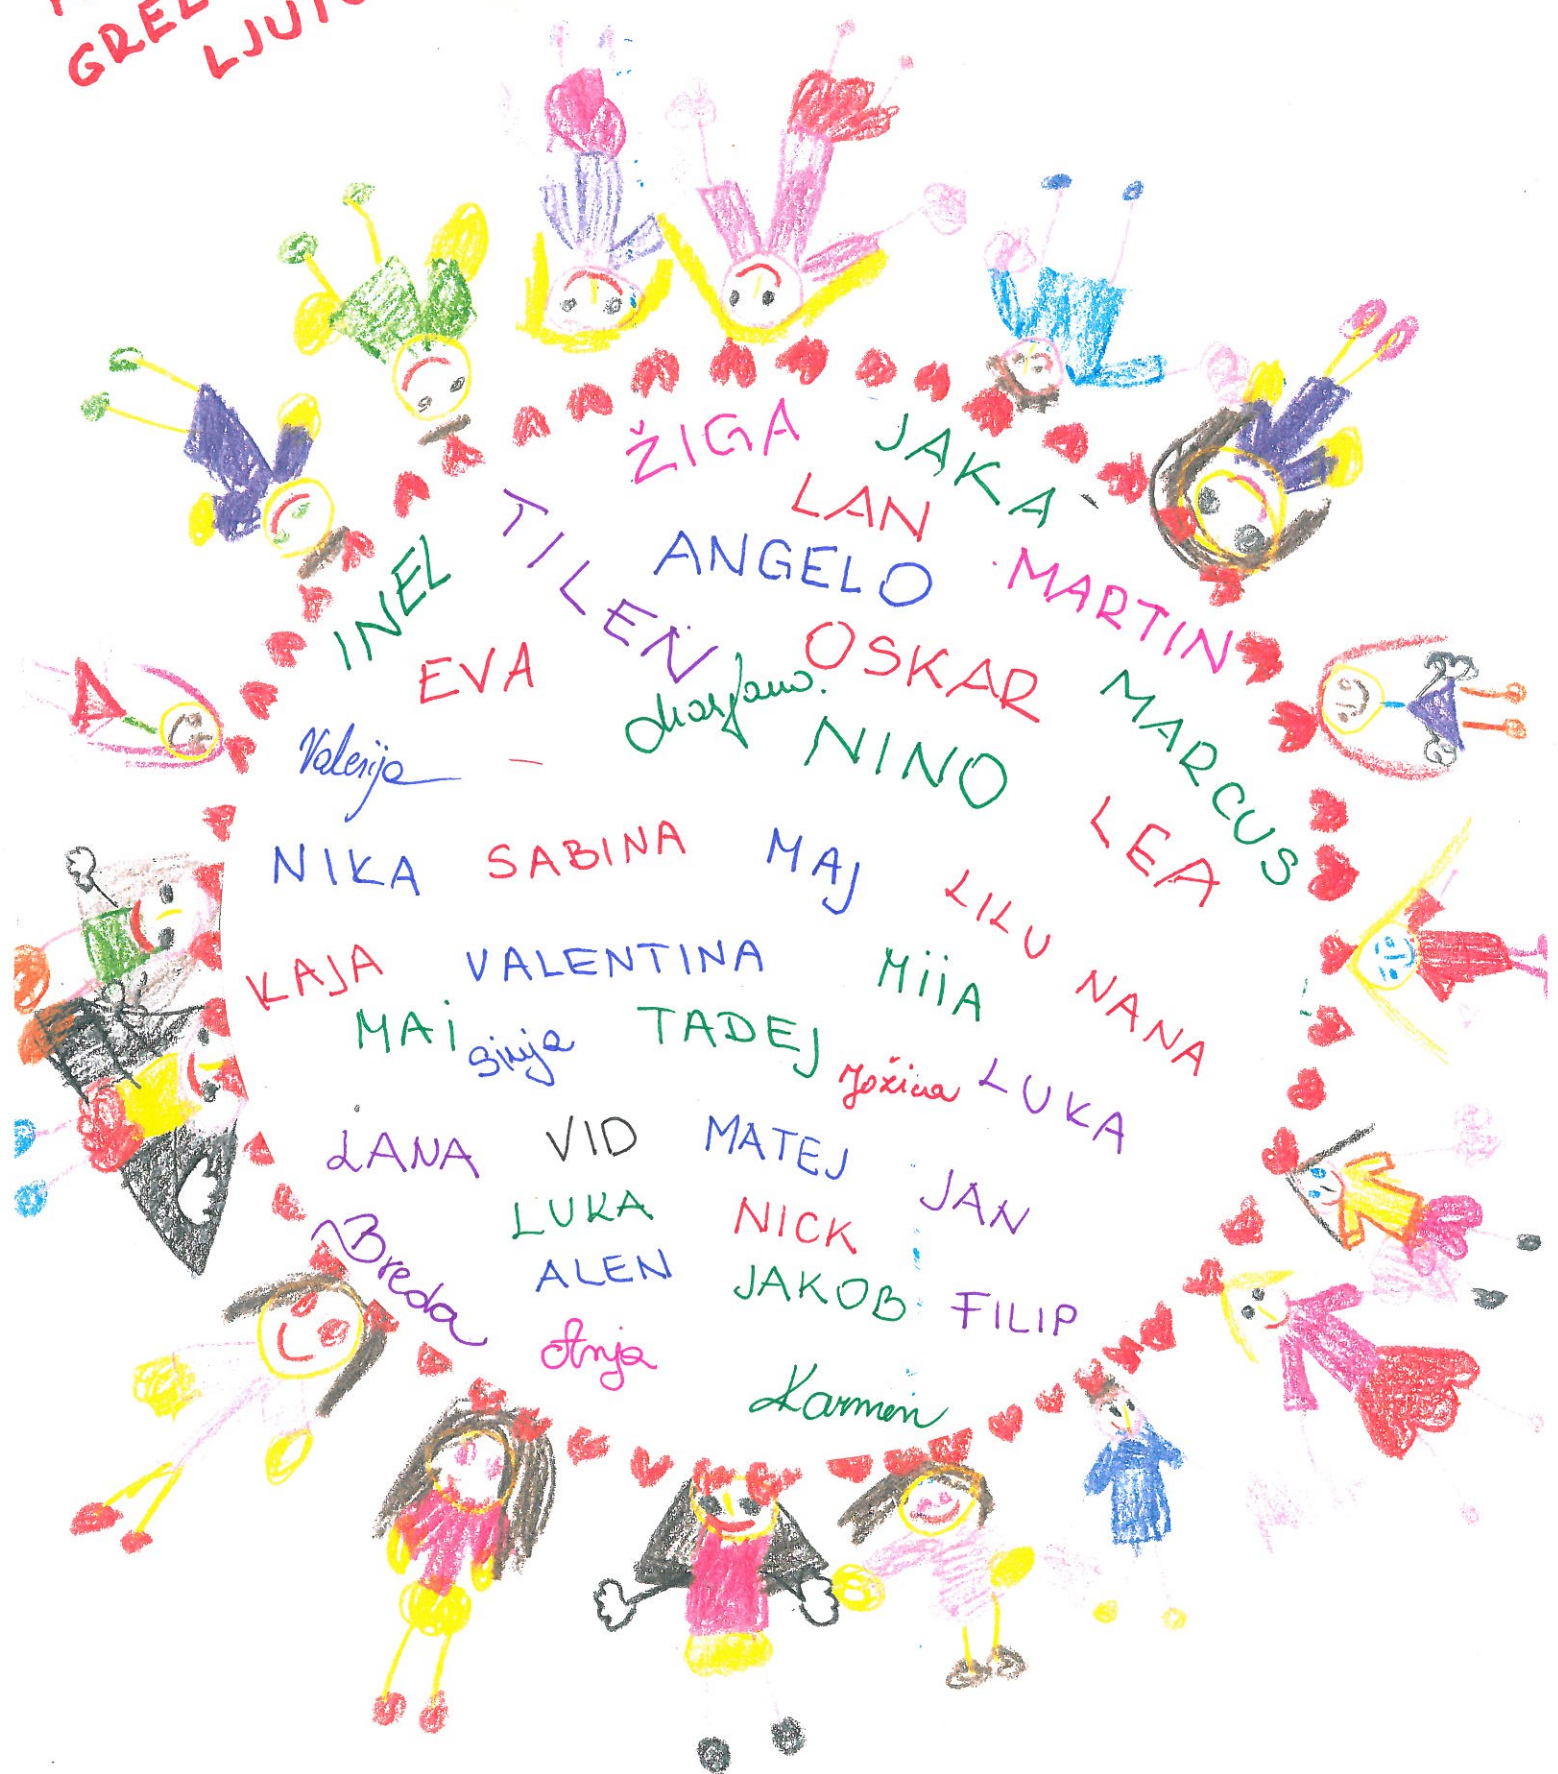 GREL
LJUTO
ŽIGA
JAKA
LAN
TILEN
ANGELO
MARTIN
INEL
EVA
OSKAR
Marjana.
NINO
MARCUS
Valerija
LEA
NIKA SABINA MAJ
LILU
KAJA VALENTINA MIIA NANA
MAI TADEJ
Jožica LUKA
LANA VID MATEJ
JAN
LUKA NICK
Breda
ALEN JAKOB FILIP
Anja
Karmen